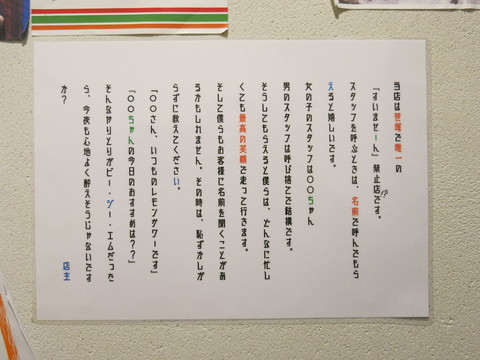 当店は笹塚で唯一の
「すいませーん」禁止店です。!?
スタッフを呼ぶときは、名前で呼んでもら
えると嬉しいです。
女の子のスタッフは〇〇ちゃん
男のスタッフは呼び捨てで結構です。
そうしてもらえると僕らは、どんなに忙し
くても最高の笑顔で走って行きます。
そして僕らもお客様に名前を聞くことがあ
るかもしれません。その時は、恥ずかしが
らずに教えてください。
「〇〇さん、いつものレモンサワーです」
「〇〇ちゃんの今日のおすすめは??」
そんなやりとりがビー・ジー・エムだった
ら、今夜も心地よく酔えそうじゃないです
か?
店主